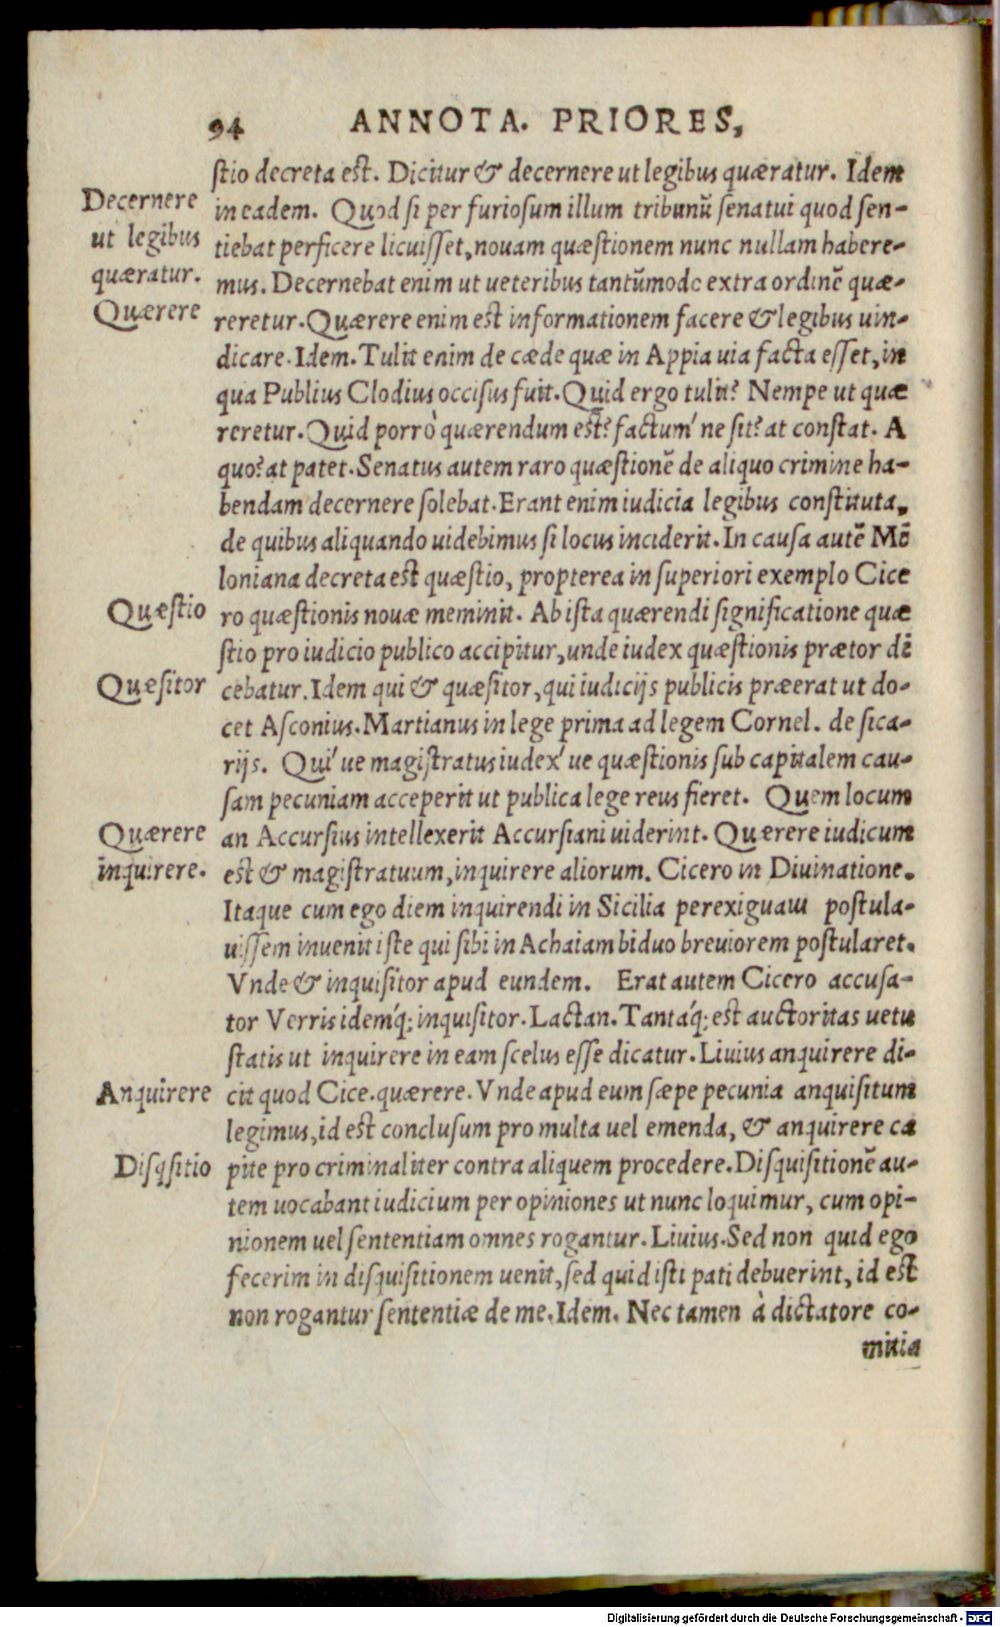 94 ANNOTA. PRIORES,
stio decreta est. Dicitur & decernere ut legibus quæratur. Idem
Decernere
in eadem. Quod si per furiosum illum tribunū senatui quod sen-
ut legibus
tiebat perficere licuisset, nouam quæstionem nunc nullam habere-
quæratur.
mus. Decernebat enim ut ueteribus tantūmodo extra ordinē quæ-
Quærere
reretur. Quærere enim est informationem facere & legibus uin-
dicare. Idem. Tulit enim de cæde quæ in Appia uia facta esset, in
qua Publius Clodius occisus fuit. Quid ergo tulit? Nempe ut quæ
reretur. Quid porrò quærendum est? factum' ne sit? at constat. A
quo? at patet. Senatus autem raro quæstionē de aliquo crimine ha-
bendam decernere solebat. Erant enim iudicia legibus constituta,
de quibus aliquando uidebimus si locus inciderit. In causa autē Mē
loniana decreta est quæstio, propterea in superiori exemplo Cice
Quæstio
ro quæstionis nouæ meminit. Ab ista quærendi significatione quæ
stio pro iudicio publico accipitur, unde iudex quæstionis prætor dī
Quæsitor
cebatur. Idem qui & quæsitor, qui iudicijs publicis præerat ut do-
cet Asconius. Martianus in lege prima ad legem Cornel. de sica-
rijs. Qui' ue magistratus iudex' ue quæstionis sub capitalem cau-
sam pecuniam acceperit ut publica lege reus fieret. Quem locum
Quærere
an Accursius intellexerit Accursiani uiderint. Quærere iudicum
inquirere.
est & magistratuum, inquirere aliorum. Cicero in Diuinatione.
Itaque cum ego diem inquirendi in Sicilia perexiguam postula-
uissem inuenit iste qui sibi in Achaiam biduo breuiorem postularet.
Vnde & inquisitor apud eundem. Erat autem Cicero accusa-
tor Verris idemq́; inquisitor. Lactan. Tantaq́; est auctoritas uetu
statis ut inquirere in eam scelus esse dicatur. Liuius anquirere di-
Anquirere
cit quod Cice. quærere. Vnde apud eum sæpe pecunia anquisitum
legimus, id est conclusum pro multa uel emenda, & anquirere ca
Disqsitio
pite pro criminaliter contra aliquem procedere. Disquisitionē au-
tem uocabant iudicium per opiniones ut nunc loquimur, cum opi-
nionem uel sententiam omnes rogantur. Liuius. Sed non quid ego
fecerim in disquisitionem uenit, sed quid isti pati debuerint, id est
non rogantur sententiæ de me. Idem. Nec tamen à dictatore co-
mitia
Digitalisierung gefördert durch die Deutsche Forschungsgemeinschaft - DFG